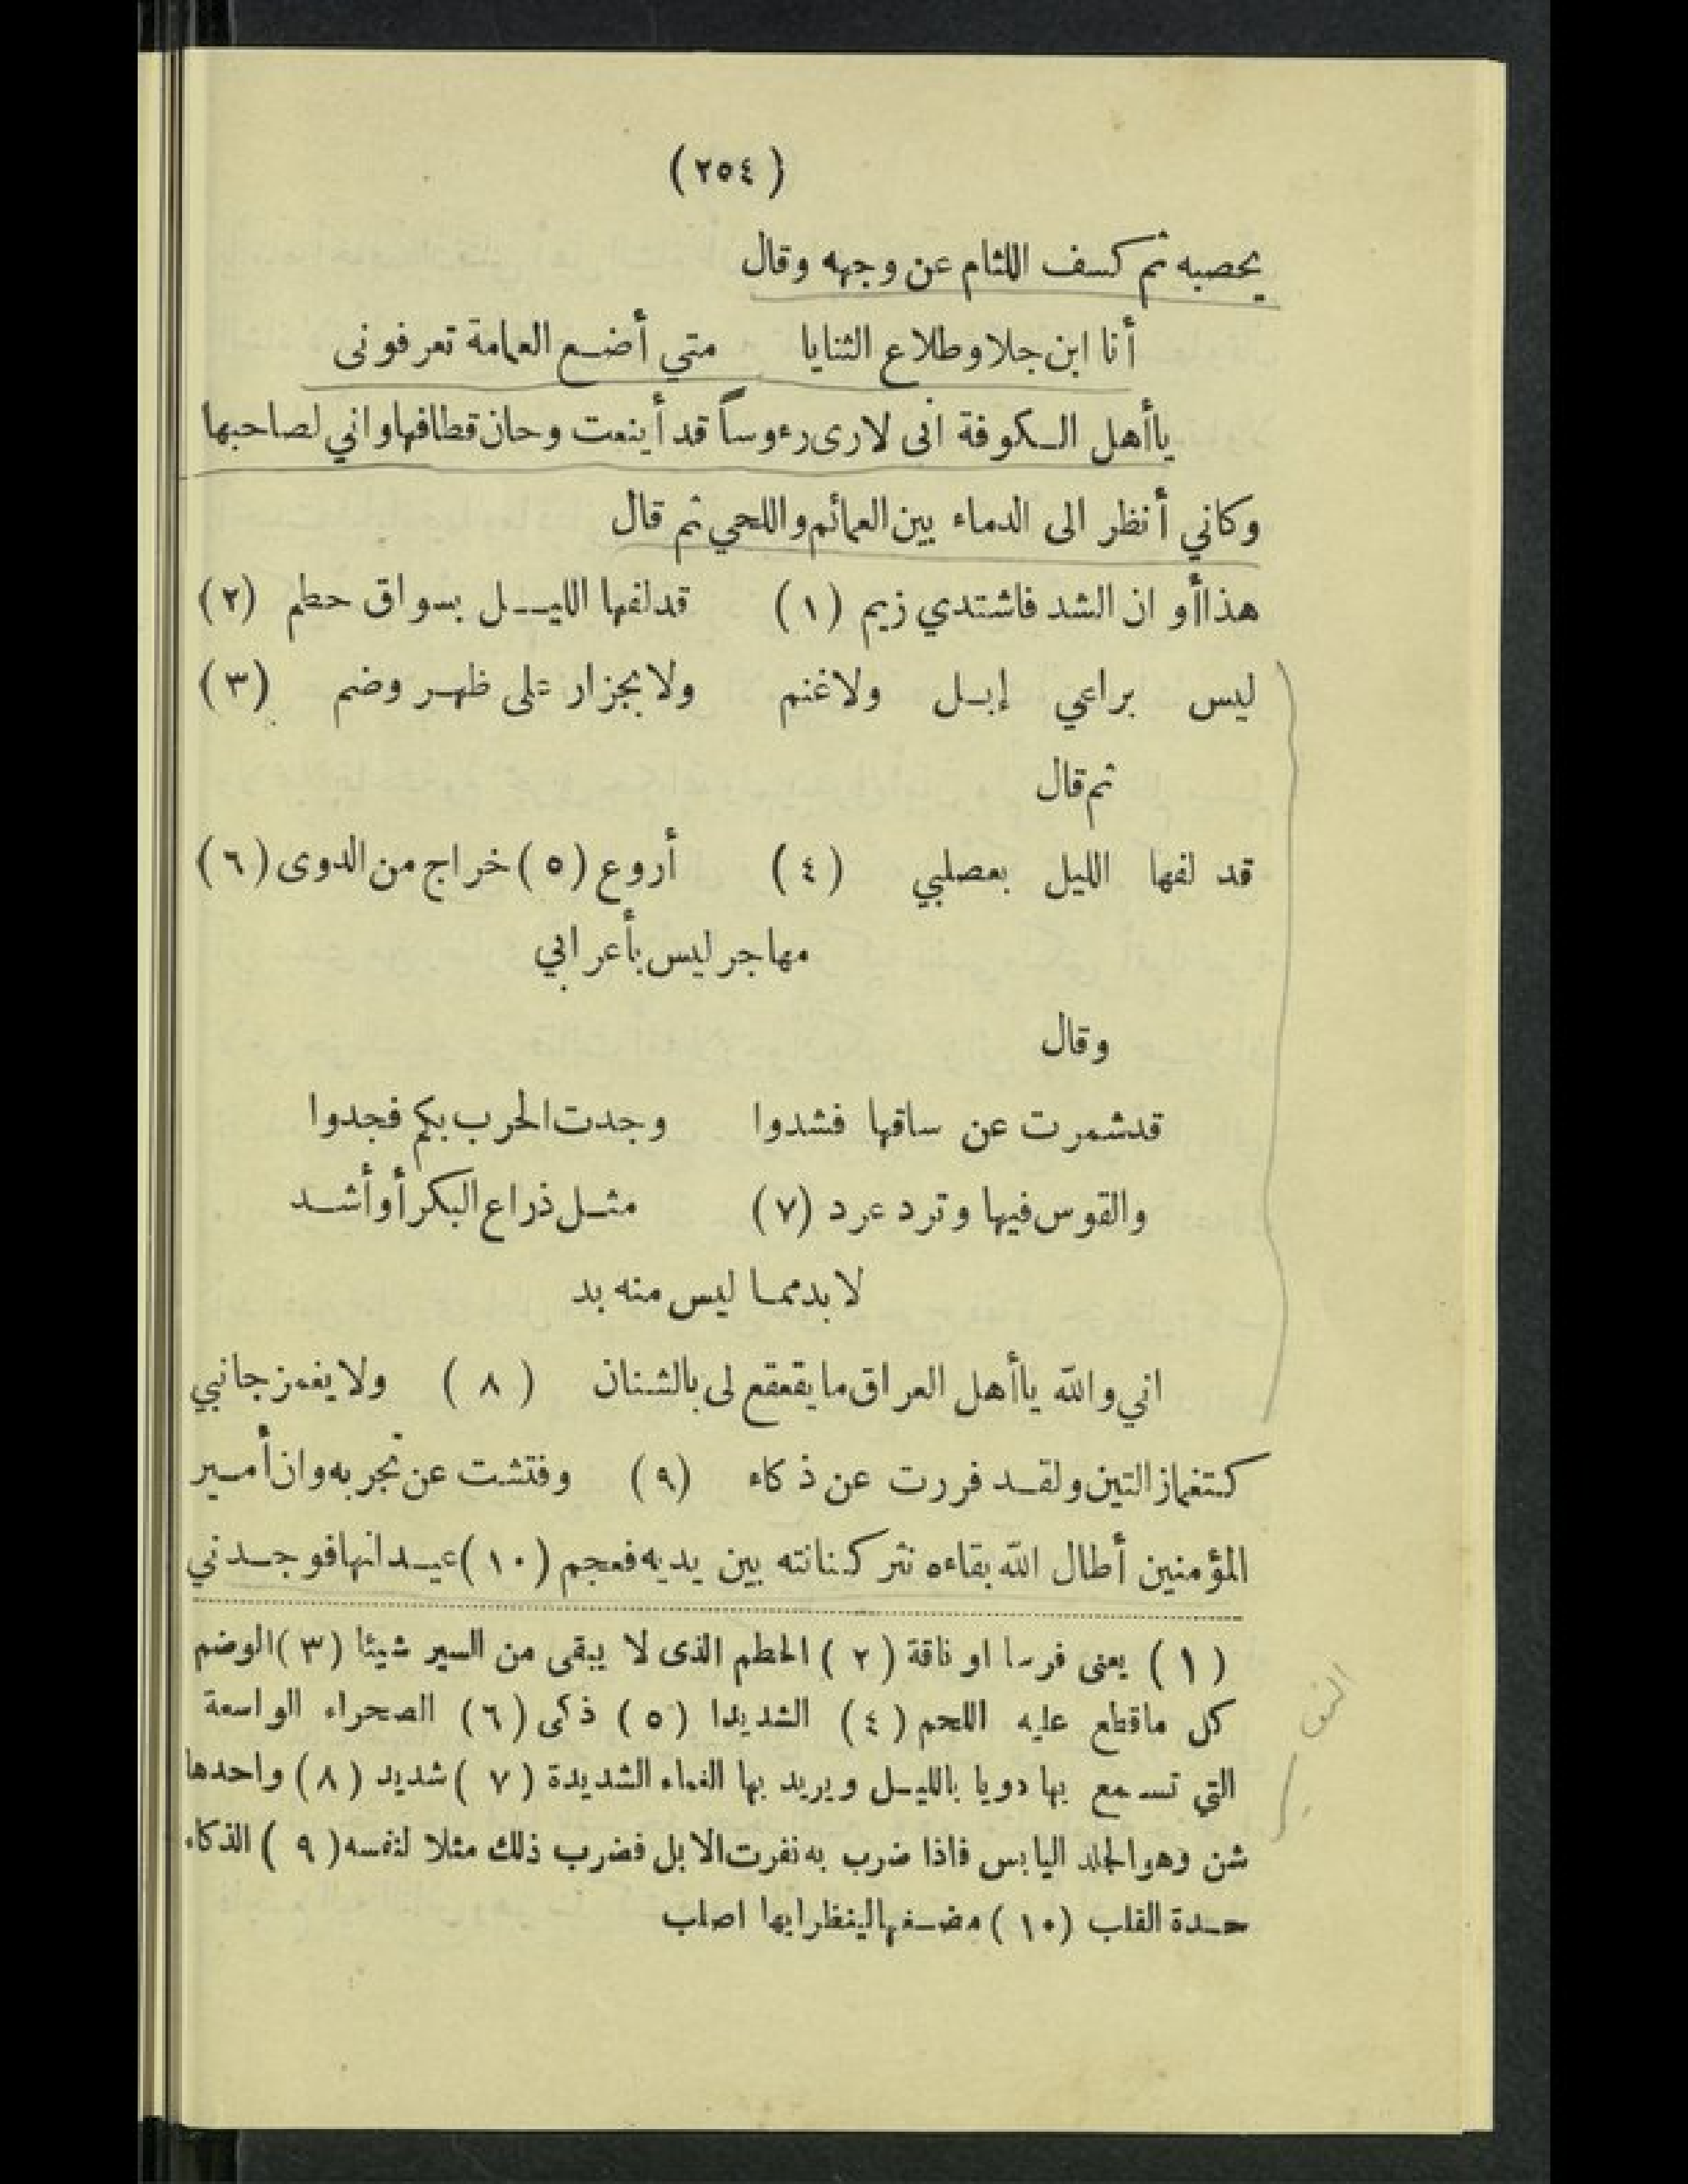 (٢٥٤)
يحصبه ثم كسف اللثام عن وجهه وقال
أنا ابن جلا وطلاع الثنايا متي أضع العمامة تعرفونى
ياأهل الكوفة انى لارى رءوساً قد أينعت وحان قطافها واني لصاحبها
وكاني أنظر الى الدماء بين العمائم واللحي ثم قال
هذا أو ان الشد فاشتدي زيم (١) قد لفها الليل بسواق حطم (٢)
ليس براعي إبل ولا غنم ولا بجزار على ظهر وضم (٣)
ثم قال
قد لفها الليل بعصلبي (٤) أروع (٥) خراج من الدوى (٦)
مهاجر ليس بأعرابي
وقال
قد شمرت عن ساقها فشدوا وجدت الحرب بكم فجدوا
والقوس فيها وترد عرد (٧) مثل ذراع البكر أو أشد
لا بد مما ليس منه بد
اني والله ياأهل العراق ما يقعقع لى بالشنان (٨) ولا يغمز جانبي
كتغماز التين ولقد فررت عن ذكاء (٩) وفتشت عن تجربه وان أمير
المؤمنين أطال الله بقاءه نثر كنانته بين يديه فعجم (١٠) عيدانها فوجدني
(١) يعنى فرسا او ناقة (٢) الحطم الذى لا يبقى من السير شيئا (٣) الوضم
كل ماقطع عليه اللحم (٤) الشديدا (٥) ذكى (٦) الصحراء الواسعة
التي تسمع بها دويا بالليل ويريد بها الغماء الشديدة (٧) شديد (٨) واحدها
شن وهو الجلد اليابس فاذا ضرب به نفرت الابل فضرب ذلك مثلا لنفسه (٩) الذكاء
حدة القلب (١٠) مضغها لينظر ايها اصلب